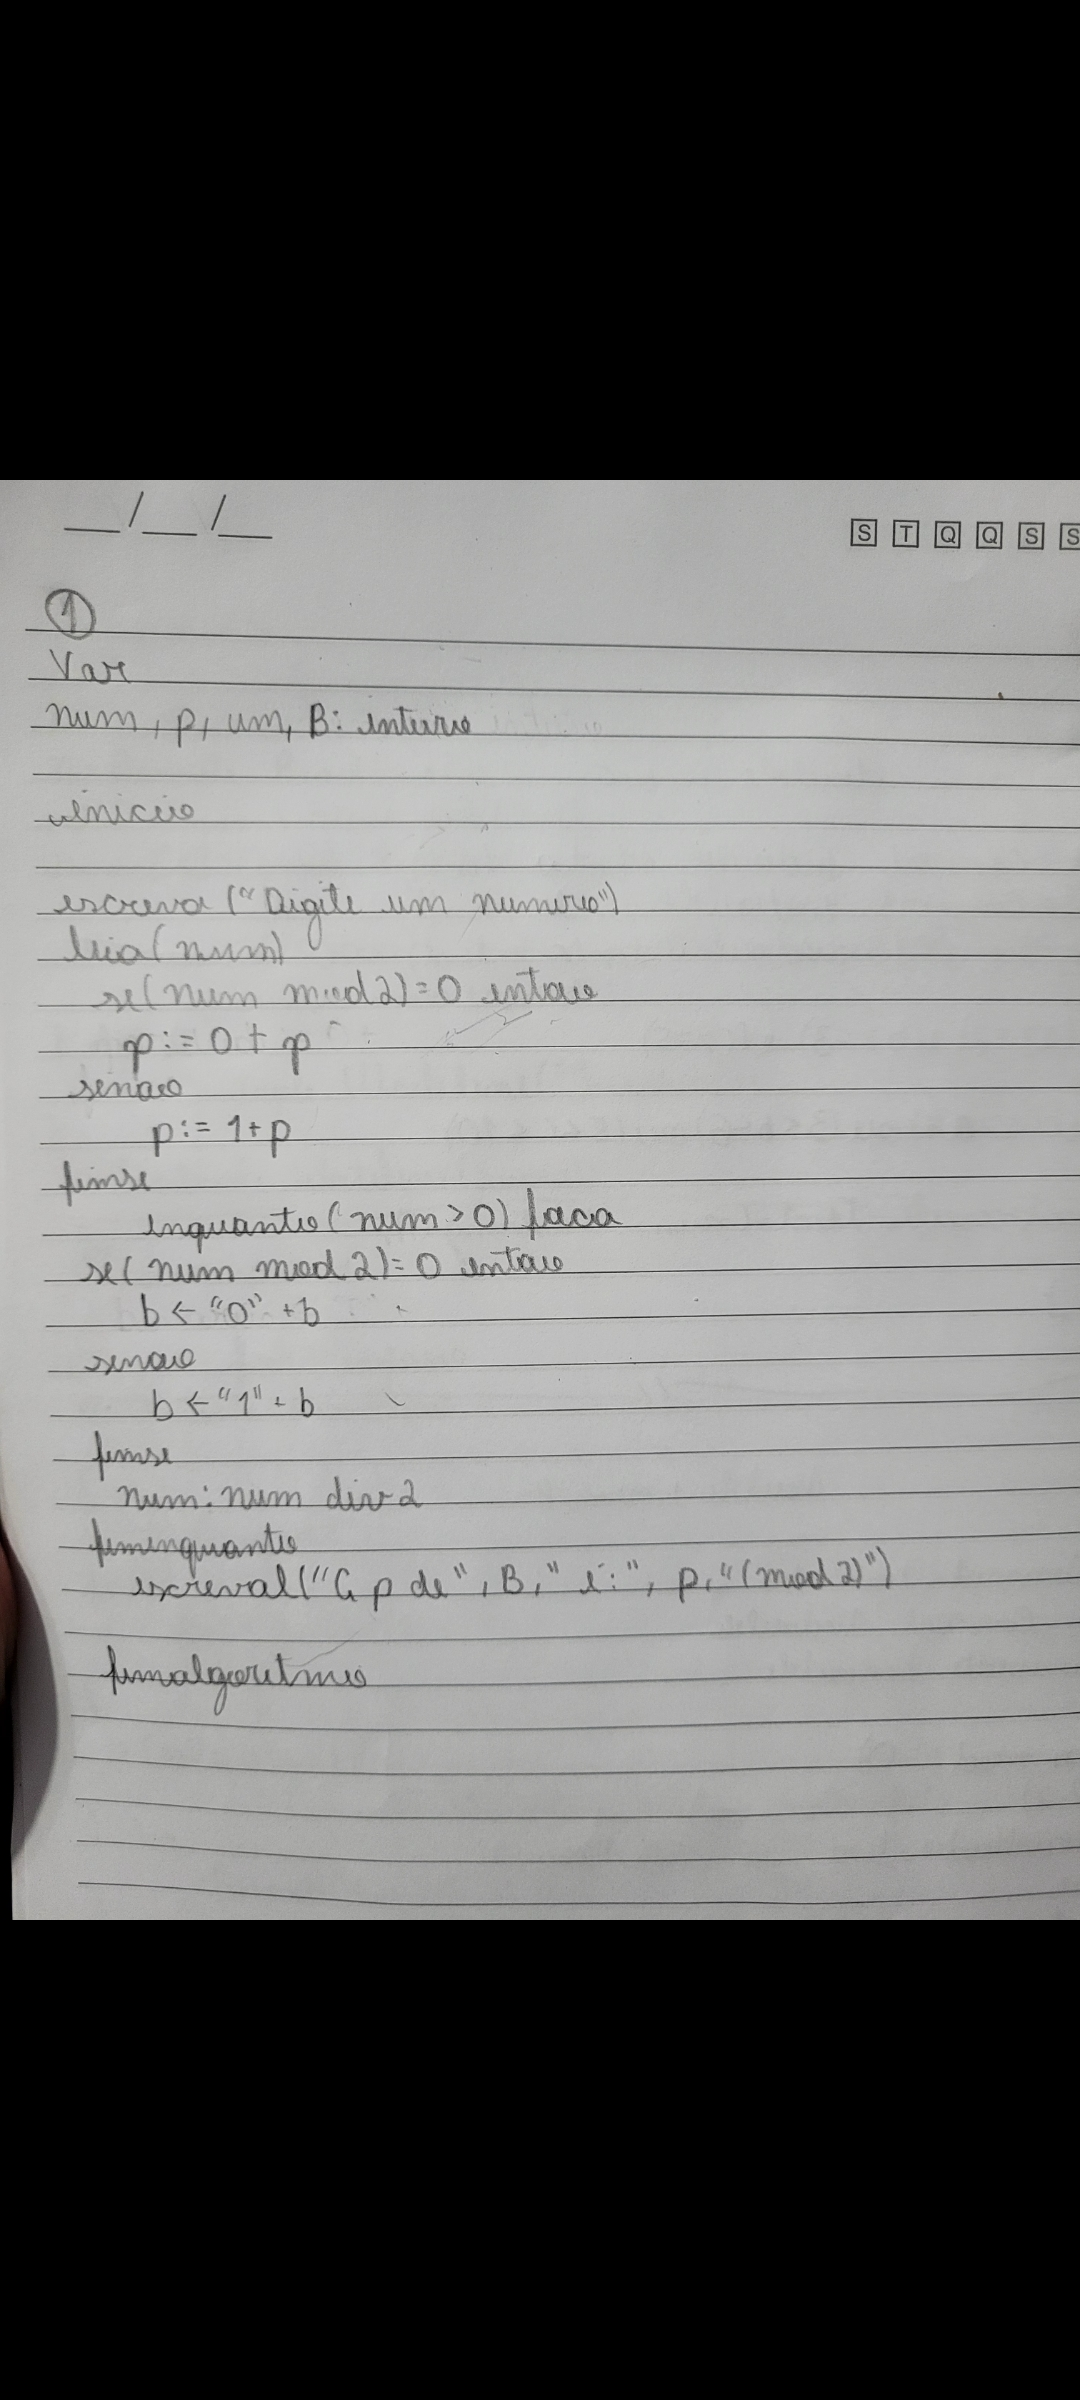 __/__/__
S T Q Q S S
1
Var
num, p, um, B: inteiro
inicio
escreva ("Digite um numero")
leia(num)
se(num mod 2)=0 entao
p:= 0 + p
senao
p:= 1+p
fimse
enquanto (num > 0) faca
se( num mod 2)= 0 entao
b ← "0" + b
senao
b ← "1" + b
fimse
num: num div 2
fimenquanto
escreval("G p de", B, " é:", p, "(mod 2)")
fimalgoritmo